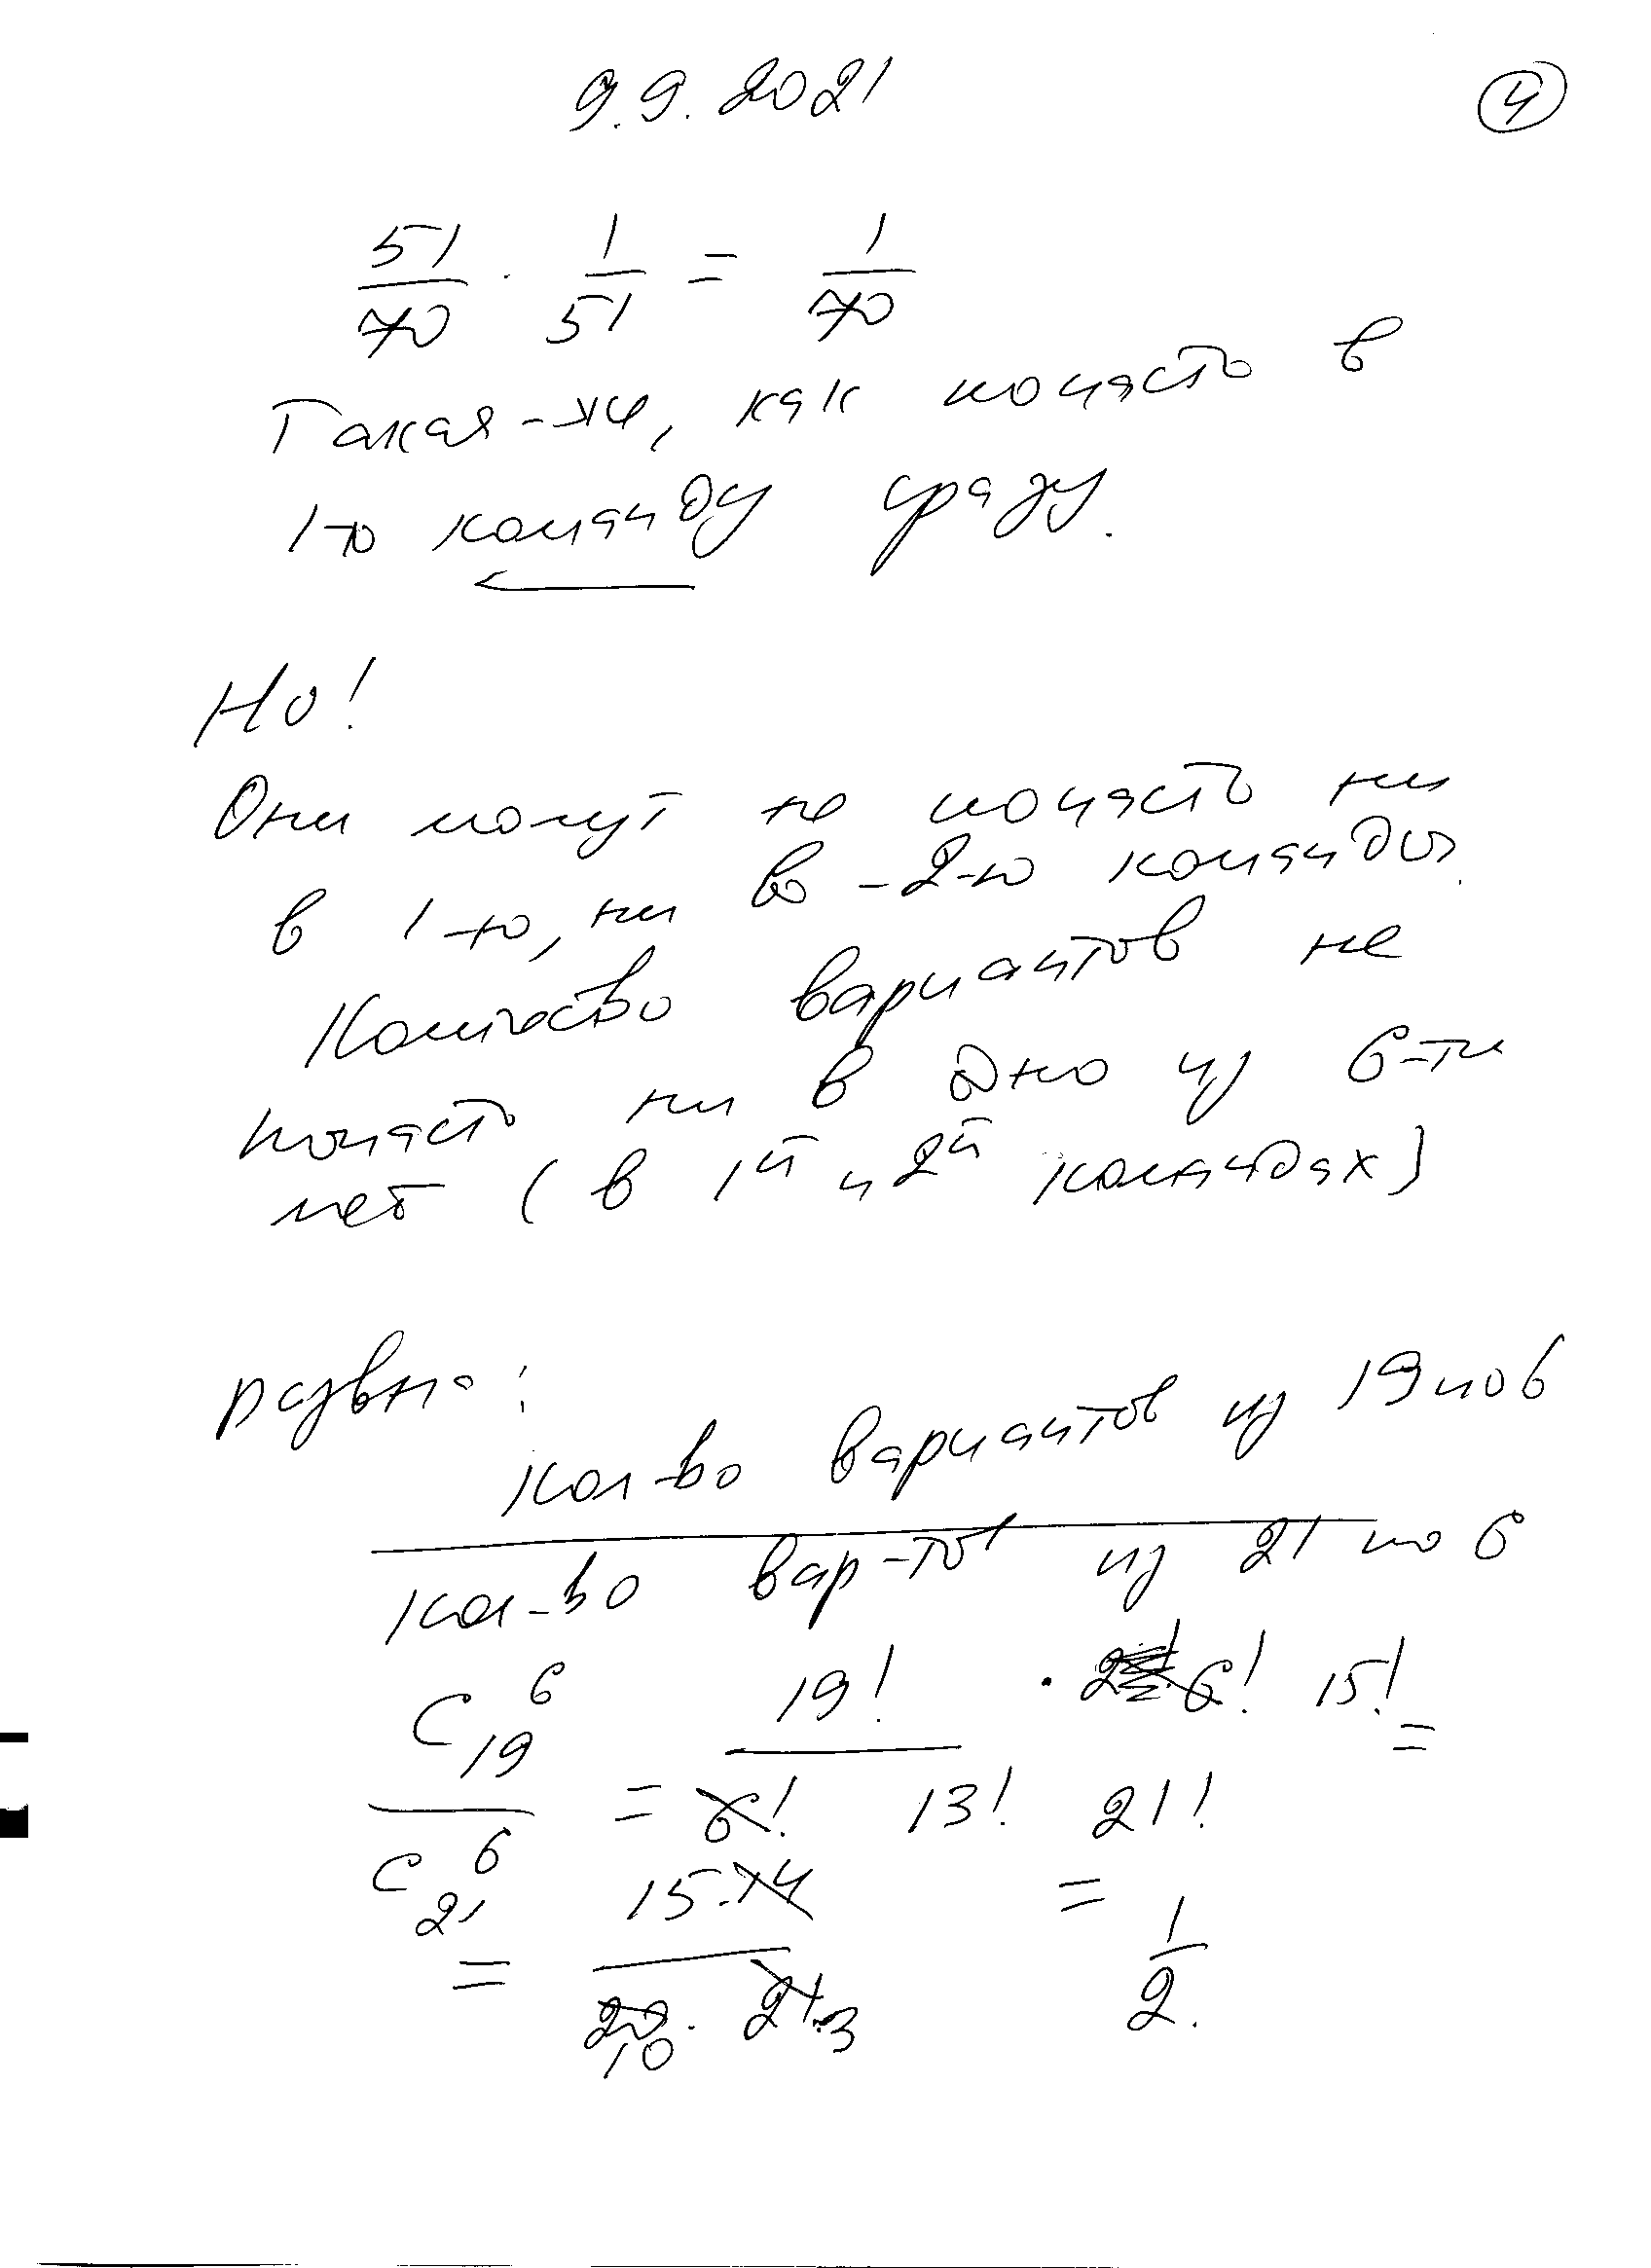 9.9.2021
4
51/70 · 1/51 = 1/70
Такая-же, как попасть в
1-ю команду сразу.
Но!
Они могут не попасть ни
в 1-ю, ни во -2-ю команды.
Количество вариантов не
попасть ни в одно из 6-ти
мест (в 1й и 2й командах)
равно:
Кол-во вариантов из 19 по 6
Кол-во вар-тов из 21 по 6
C₁₉⁶ / C₂₁⁶ = 19! / 6! 13! · 6! 15! / 21! =
= 15·14 / 20·21 10·3 = 1/2.